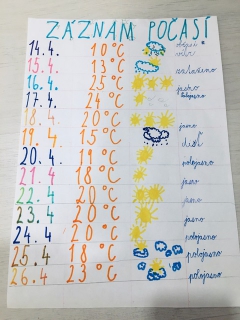 ZÁZNAM POČASÍ
14.4. 10°C
15.4. 13°C zataženo
16.4. 25°C jasno
17.4. 24°C polojasno
18.4. 20°C jasno
19.4. 15°C déšť
20.4. 19°C polojasno
21.4 18°C jasno
22.4 20°C jasno
23.4 20°C jasno
24.4 20°C polojasno
25.4 18°C polojasno
26.4 23°C polojasno